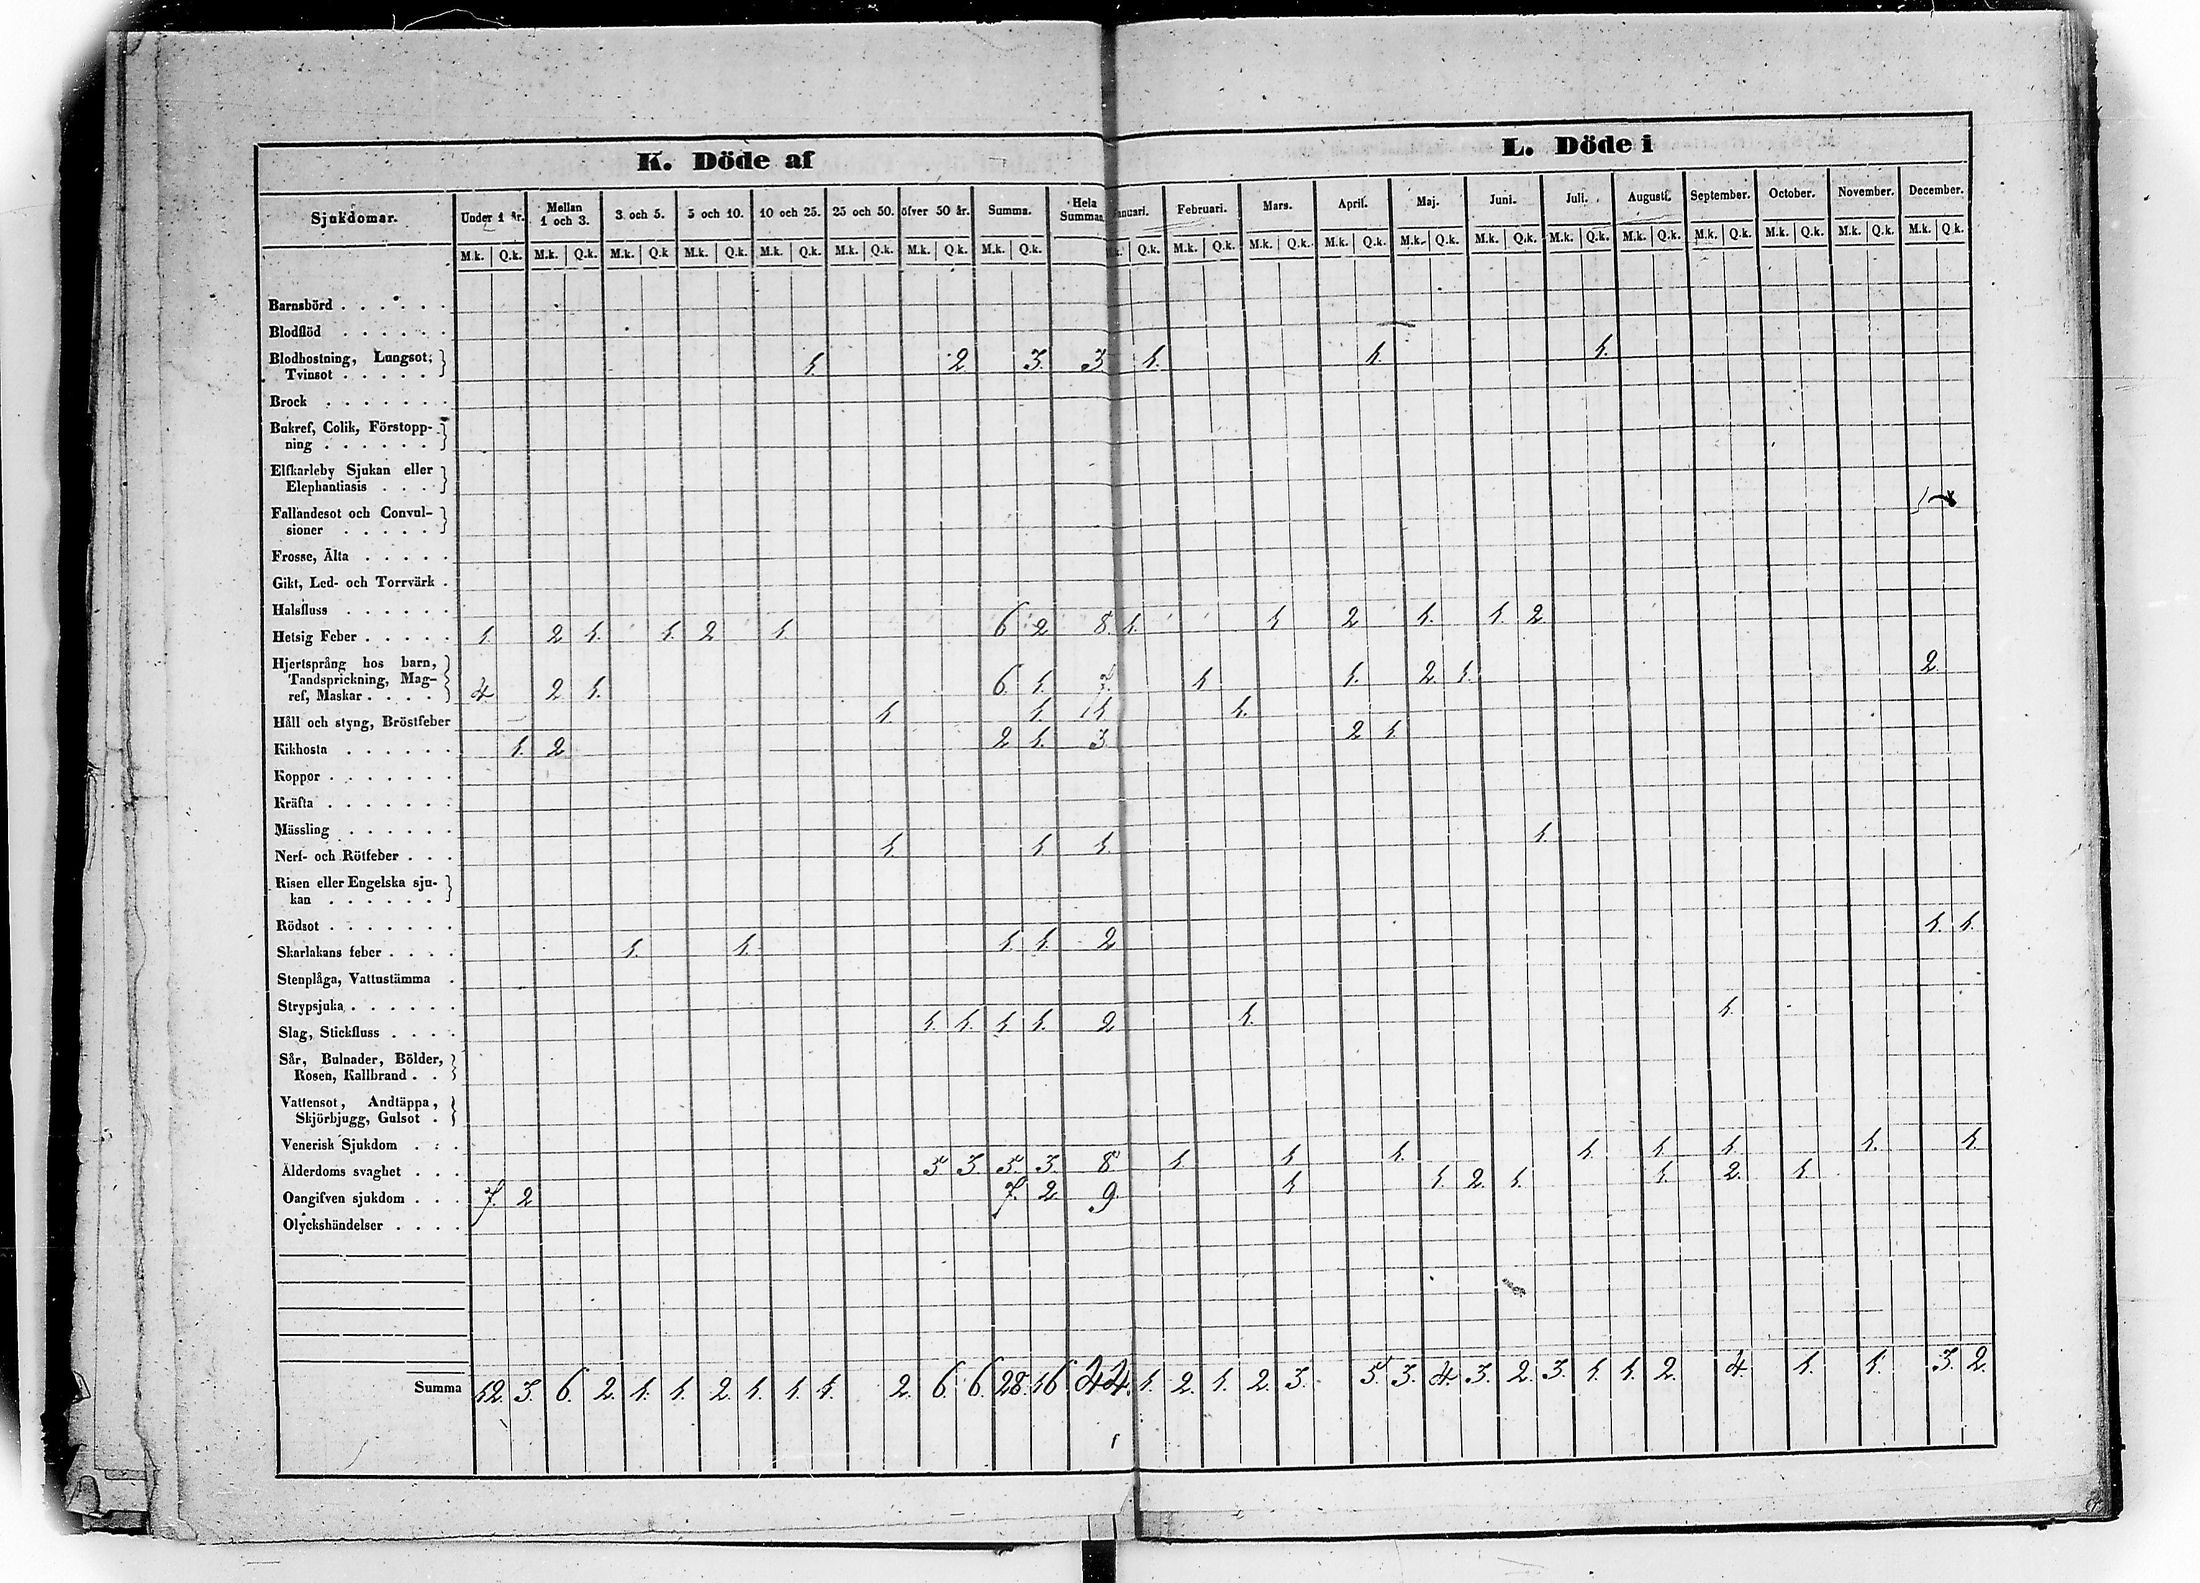 K. Döde af L. Döde i
Sjukdomar. Under 1 år. Mellan 1 och 3. 3 och 5. 5 och 10. 10 och 25. 25 och 50. öfver 50 år. Summa. Hela Summan. anuari. Februari. Mars. April. Maj. Juni. Juli. Augusti. September. October. November. December.
M.k. Q.k. M.k. Q.k. M.k. Q.k M.k. Q.k. M.k. Q.k. M.k. Q.k. M.k. Q.k. M.k. Q.k. Q.k. M.k. Q.k. M.k. Q.k. M.k. Q.k. M.k. Q.k. M.k. Q.k. M.k. Q.k. M.k. Q.k. M.k. Q.k. M.k. Q.k. M.k. Q.k. M.k. Q.k.
Barnsbörd . . . . . .
Blodflöd . . . . . .
Blodhostning, Lungsot,
Tvinsot . . . . . 1. 2 3. 3 1. 1. 1.
Brock . . . . . . .
Bukref, Colik, Förstopp-
ning . . . . . .
Elfkarleby Sjukan eller
Elephantiasis . . .
Fallandesot och Convul-
sioner . . . . .
Frosse, Älta . . . . .
Gikt, Led- och Torrvärk .
Halsfluss . . . . . .
Hetsig Feber . . . . . 1. 2 1. 1. 2 1. 6 2 8. 1. 1 2 1. 1. 2
Hjertsprång hos barn,
Tandsprickning, Mag-
ref, Maskar . . . . 4 2 1. 6. 1. 7. 1 1. 2. 1. 2.
Håll och styng, Bröstfeber 1 1. 1 1.
Kikhosta . . . . . . 1. 2 2 1. 3 2 1.
Koppor . . . . . . .
Kräfta . . . . . . .
Mässling . . . . . .
Nerf- och Rötfeber . . . 1. 1 1. 1.
Risen eller Engelska sju-
kan . . . . . .
Rödsot . . . . . . .
Skarlakans feber . . . . 1. 1. 1. 1. 2 1. 1.
Stenplåga, Vattustämma .
Strypsjuka . . . . . .
Slag, Stickfluss . . . . 1. 1. 1. 1. 2 1. 1.
Sår, Bulnader, Bölder,
Rosen, Kallbrand . .
Vattensot, Andtäppa,
Skjörbjugg, Gulsot .
Venerisk Sjukdom . . .
Ålderdoms svaghet . . . 5 3. 5. 3. 8 1 1 1. 1 1 1. 1. 1.
Oangifven sjukdom . . . 7. 2 7. 2. 9. 1 1. 2. 1. 1. 2. 1.
Olyckshändelser . . . .
Summa 12. 3. 6. 2. 1. 1. 2. 1. 1. 1. 2. 6. 6. 28. 16. 44. 1. 2. 1. 2. 3. 5. 3. 4. 3. 2. 3. 1. 1. 2. 4. 1. 1. 3. 2.